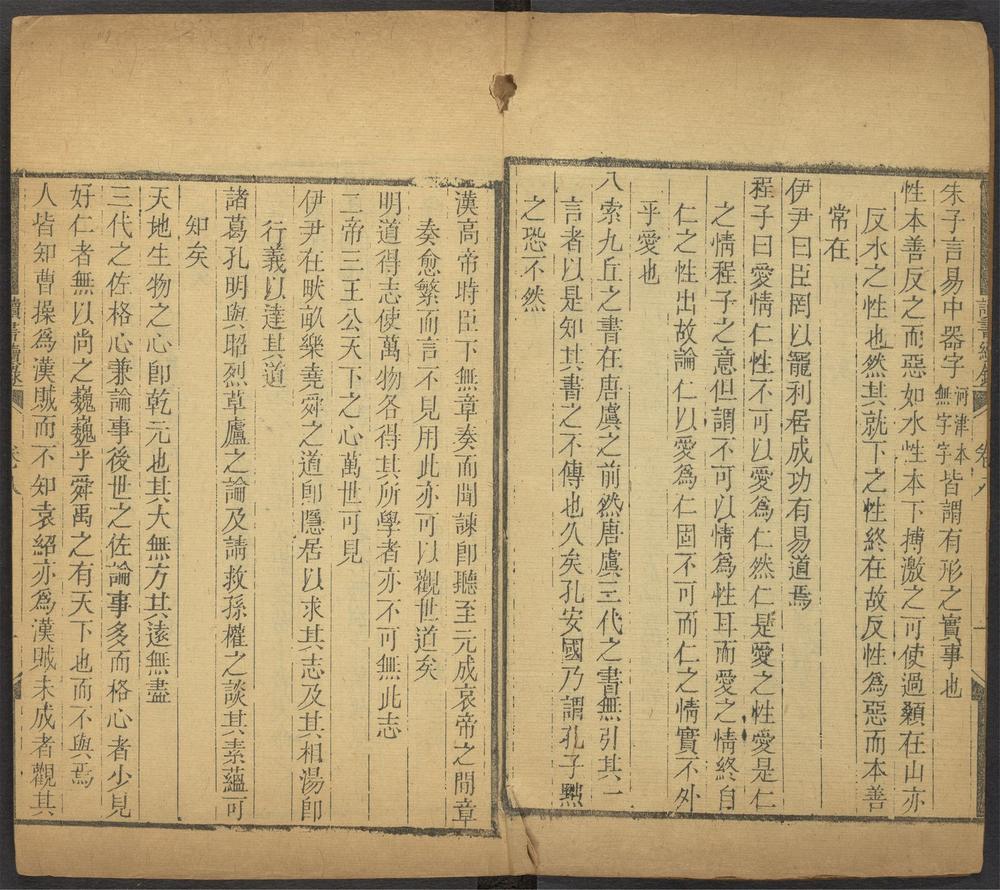 朱子言易中器字河津本無字字皆謂有形之實事也
性本善反之而惡如水性本下搏激之可使過顙在山亦
反水之性也然其就下之性終在故反性為惡而本善
常在
伊尹曰臣罔以寵利居成功有易道焉
程子曰愛情仁性不可以愛爲仁然仁是愛之性愛是仁
之情程子之意但謂不可以情爲性耳而愛之情終自
仁之性出故論仁以愛爲仁固不可而仁之情實不外
乎愛也
八索九丘之書在唐虞之前然唐虞三代之書無引其一
言者以是知其書之不傳也久矣孔安國乃謂孔子黜
之恐不然
漢高帝時臣下無章奏而聞諫卽聽至元成哀帝之間章
奏愈繁而言不見用此亦可以觀世道矣
明道得志使萬物各得其所學者亦不可無此志
二帝三王公天下之心萬世可見
伊尹在畎畝樂堯舜之道卽隱居以求其志及其相湯卽
行義以達其道
諸葛孔明與昭烈草廬之論及請救孫權之談其素蘊可
知矣
天地生物之心卽乾元也其大無方其遠無盡
三代之佐格心兼論事後世之佐論事多而格心者少見
好仁者無以尚之巍巍乎舜禹之有天下也而不與焉
人皆知曹操爲漢賊而不知袁紹亦爲漢賊未成者觀其
讀書續錄
卷八